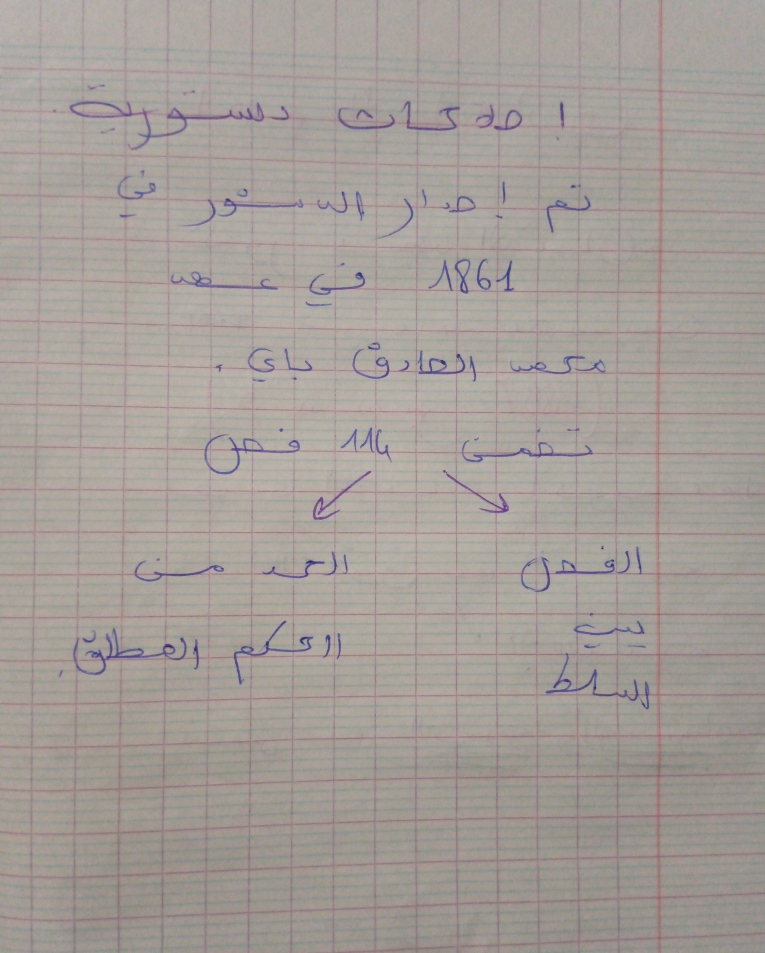 إصلاحات دستورية
تم إصدار الدستور في
1861 في عهد
محمد الصادق باي.
تضمن 114 فصل
الفصل الحد من
بين الحكم المطلق.
السلط